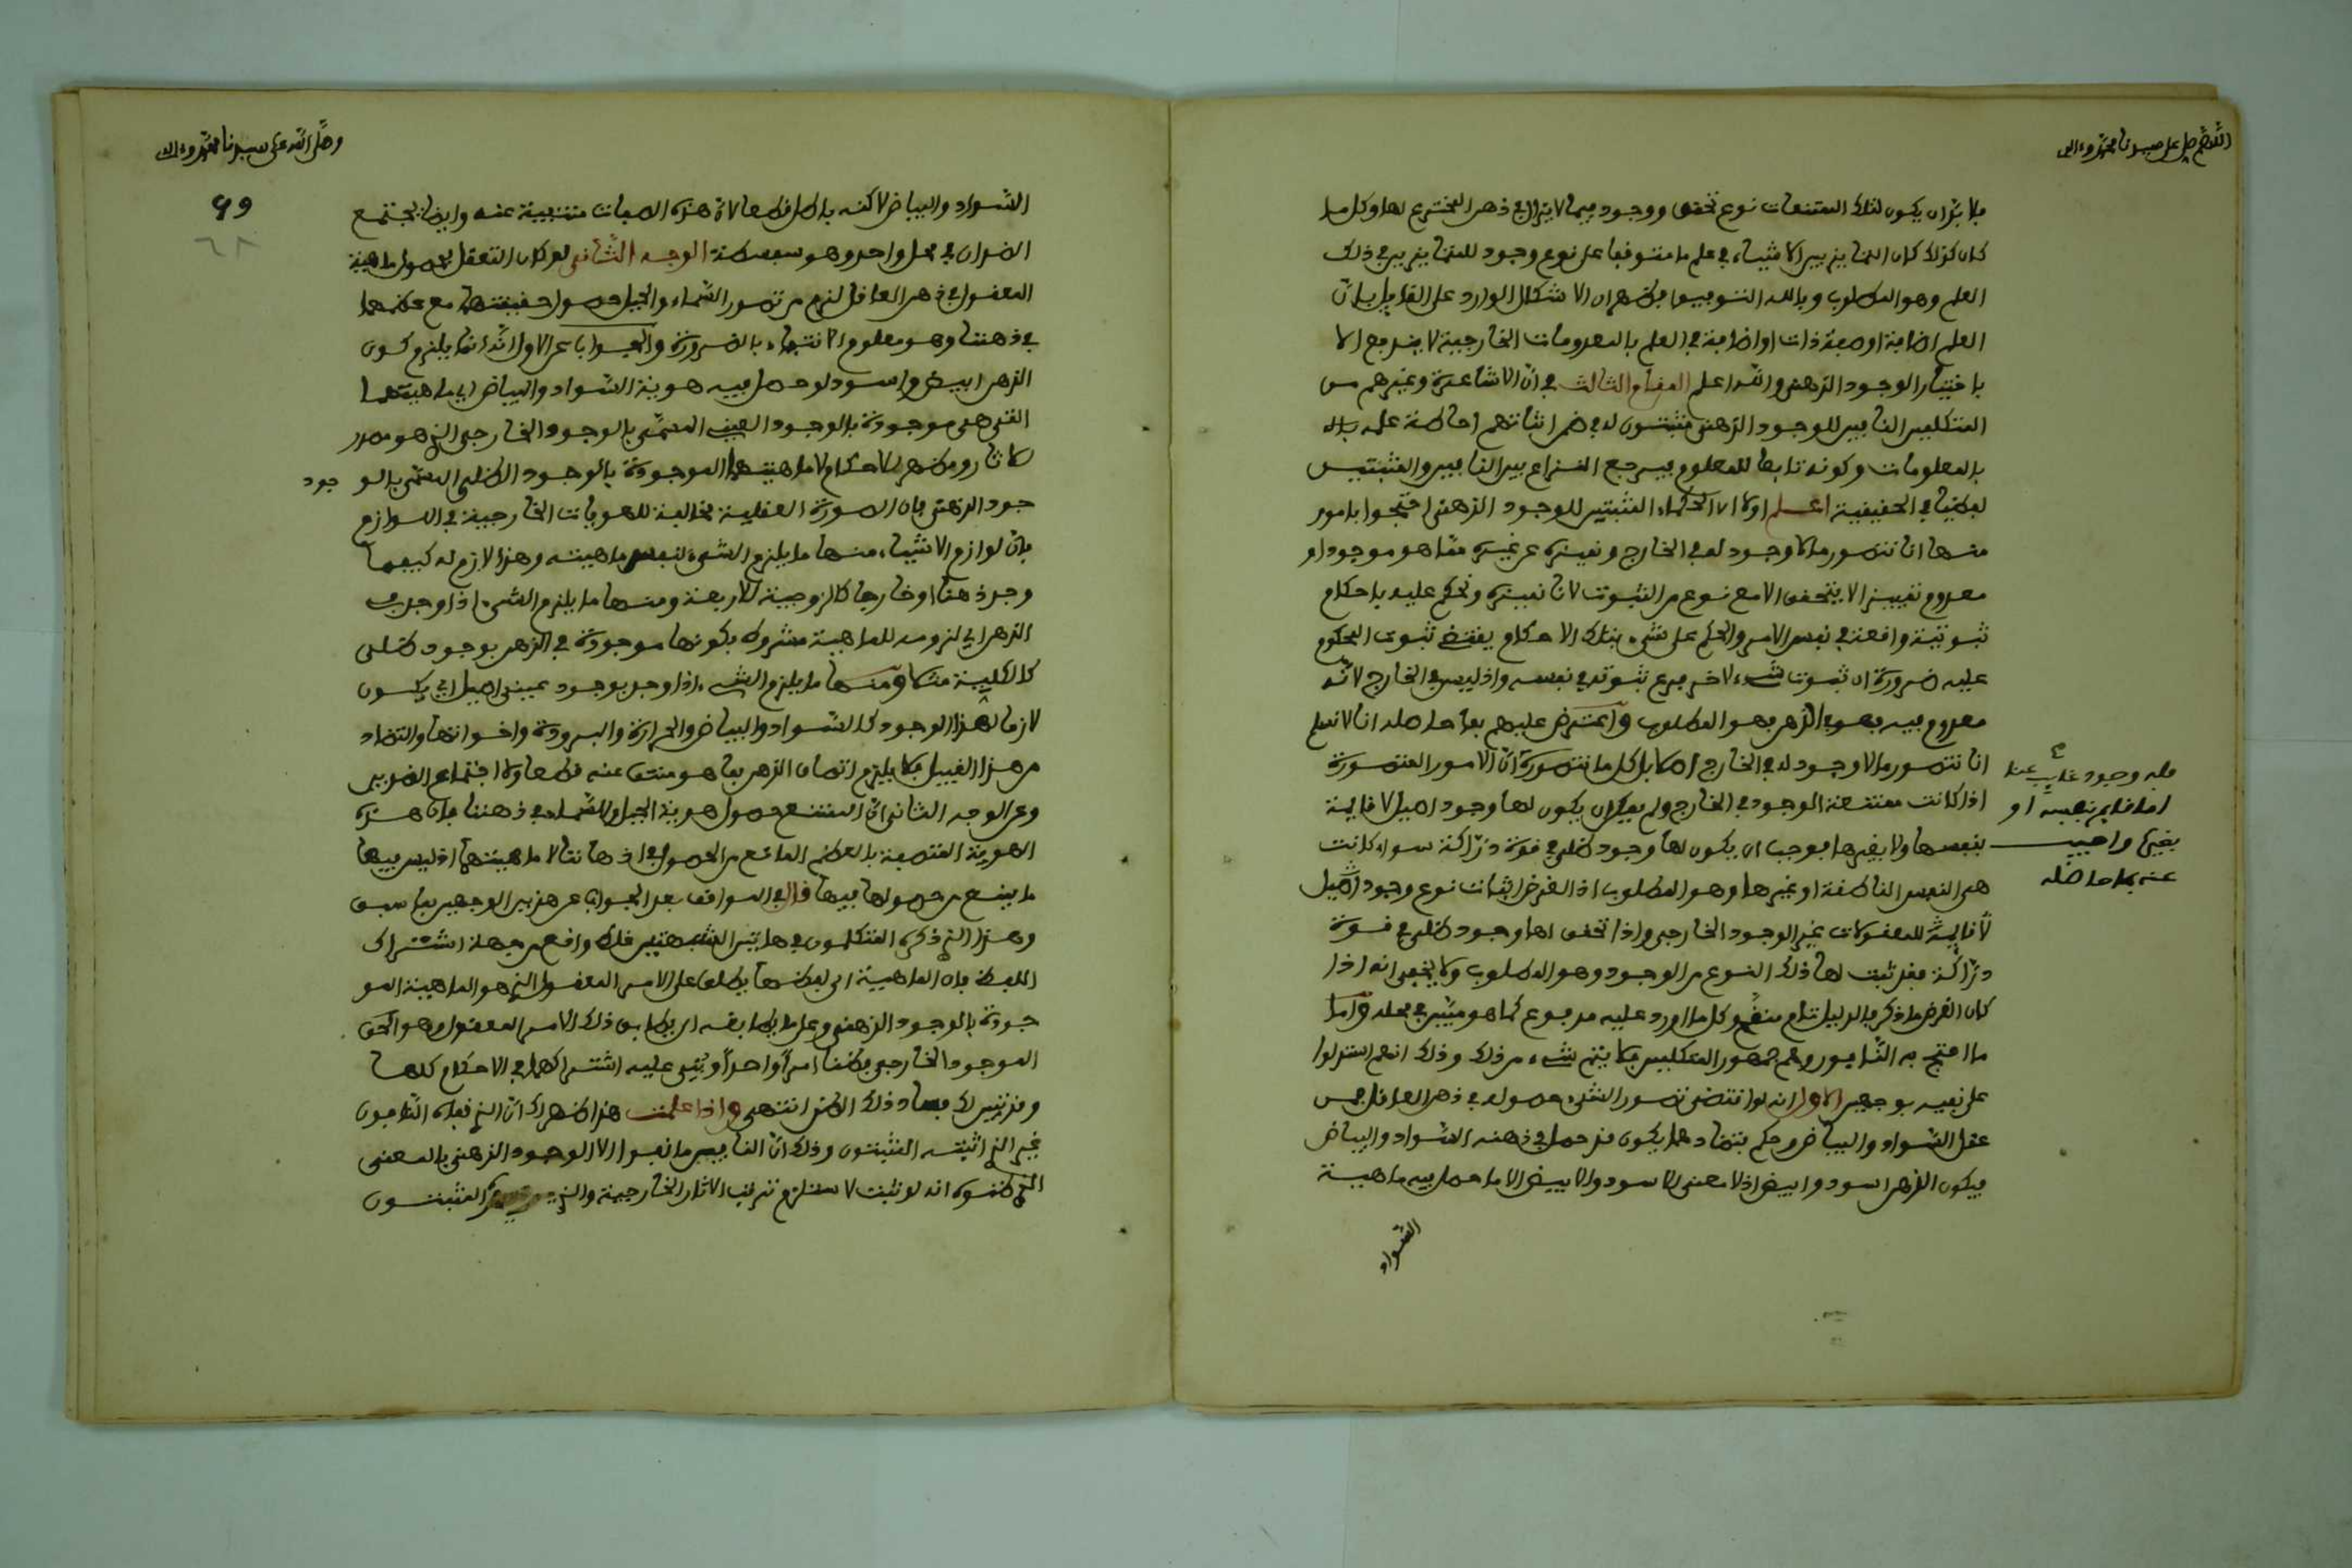 اللهم صل على سيدنا محمد وءاله
فلا بد ان يكون لتلك الممتنعات نوع تحقق ووجود فيما لا يزال في ذهن المخترع لها وكل ما
كان كذلك كان التمايز بين الاشياء في علم ما متوقفا على نوع وجود للمتمايزين في ذلك
العلم وهو المطلوب وبالله التوفيق فظهر ان الاشكال الوارد على القايل بان
العلم اضافة او صفة ذات اضافة في العلم بالمعدومات الخارجية لا يندفع الا
باختيار الوجود الذهني والله اعلم المقام الثالث في ان الاشاعرة وغيرهم من
المتكلمين النافين للوجود الذهني مثبتون له في ضمن اثباتهم احاطة علمه
بالمعلومات وكونه تابعا للمعلوم فيرجع النزاع بين النافين والمثبتين
لفظيا في الحقيقة اعلم اولا ان الحكماء المثبتين للوجود الذهني احتجوا بامور
منها انا نتصور ما لا وجود له في الخارج ونميزه عن غيره مما هو موجود او
معدوم تمييزا لا يتحقق الا مع نوع من الثبوت لانا نميزه ونحكم عليه باحكام
ثبوتية واقعة في نفس الامر والحكم على شيء بتلك الاحكام يقتضي ثبوت المحكوم
عليه ضرورة ان ثبوت شيء لاخر فرع ثبوته في نفسه واذ ليس في الخارج لانه
معدوم فيه فهو في الذهن فهو المطلوب واعترض عليهم بما حاصله انا لا نسلم
انا نتصور ما لا وجود له في الخارج اصلا بل كل ما نتصوره
اذا كانت ممتنعة الوجود في الخارج ولم يمكن ان يكون لها وجود اصيل لا قايمة
بنفسها ولا بغيرها فوجب ان يكون لها وجود ظلي في قوة دراكة سواء كانت
هي النفس الناطقة او غيرها وهو المطلوب اذ الغرض اثبات نوع وجود
للمعقولات غير الوجود الخارجي واذا تحقق لها وجود ظلي في قوة
دراكة فقد ثبت لها ذلك النوع من الوجود وهو المطلوب ولا يخفى انه اذا
كان الغرض ما ذكر فالدليل تام منقح وكل ما اورد عليه مدفوع كما هو مبين في محله واما
ما احتج به النافون وهم جمهور المتكلمين فلا يتم شيء من ذلك وذلك انهم استدلوا
على نفيه بوجهين الاول انه لو اقتضى تصور الشيء حصوله في ذهن العاقل فمن
عقل السواد والبياض وحكم بتضادهما يكون قد حصل في ذهنه السواد والبياض
فيكون الذهن اسود وابيض اذ لا معنى للاسود والابيض الا ما حصل فيه ماهية
السواد
فله وجود غايب عنا
اما قايم بنفسه او
بغيره واجيب
عنه بما حاصله
ان الامور المتصورة
وصلى الله على سيدنا محمد وءاله
69
٦٨
السواد والبياض لاكنه باطل قطعا لان هذه الصفات منتفية عنه وايضا يجتمع
الضدان في محل واحد وهو سفسطة الوجه الثاني لو كان التعقل بحصول ماهية
المعقول في ذهن العاقل لزم من تصور السماء والجبل حصول حقيقتهما مع عظمهما
في ذهننا وهو معلوم الانتفاء بالضرورة والجواب عن الاول انه انما يلزم كون
الذهن ابيض واسود لو حصل فيه هوية السواد والبياض اي ماهيتهما
التي هي موجودة بالوجود العيني المسمى بالوجود الخارجي الذي هو مصدر
للاثار ومظهر للاحكام لا ماهيتهما الموجودة بالوجود الظلي المسمى بالو جود
جود الذهني فان الصورة العقلية مخالفة للهويات الخارجية في اللوازم
فان لوازم الاشياء منها ما يلزم الشيء لنفس ماهيته وهذا لازم له كيفما
وجد ذهنا او خارجا كالزوجية للاربعة ومنها ما يلزم الشيء اذا وجد في
الذهن اي لزومه للماهية مشروط بكونها موجودة في الذهن بوجود ظلي
كالكلية مثلا ومنها ما يلزم الشيء اذا وجد بوجود عيني اصيل اي يكون
لازما لهذا الوجود كالسواد والبياض والحرارة والبرودة واخواتها والتضاد
من هذا القبيل فلا يلزم اتصاف الذهن بما هو منتف عنه قطعا ولا اجتماع الضدين
وعن الوجه الثاني ان الممتنع حصول هوية الجبل والسماء في ذهننا فان هذه
الهوية المتصفة بالعظم المانع من الحصول في اذهاننا لا ماهيتهما اذ ليس فيها
ما يمنع من حصولها فيها قال في المواقف بعد الجواب عن هذين الوجهين بما سبق
وهذا الذي ذكره المتكلمون في هاتين الشبهتين غلط واقع من جهة اشتراك
اللفظ فان الماهية اي لفظها يطلق على الامر المعقول الذي هو الماهية المو
جودة بالوجود الذهني وعلى ما يطابقه اي يطابق ذلك الامر المعقول وهو
الموجود الخارجي فظنا امرا واحدا وبني عليه اشتراكهما في الاحكام كلها
وقد تبين لك فساد ذلك الظن انتهى واذا علمت هذا ظهر لك ان الذي نفاه النافون
غير الذي اثبته المثبتون وذلك ان النافين ما نفوا الا الوجود الذهني بالمعنى
الذي ظنوه انه لو ثبت لاستلزم ترتيب الاثار الخارجية والذي المثبتون